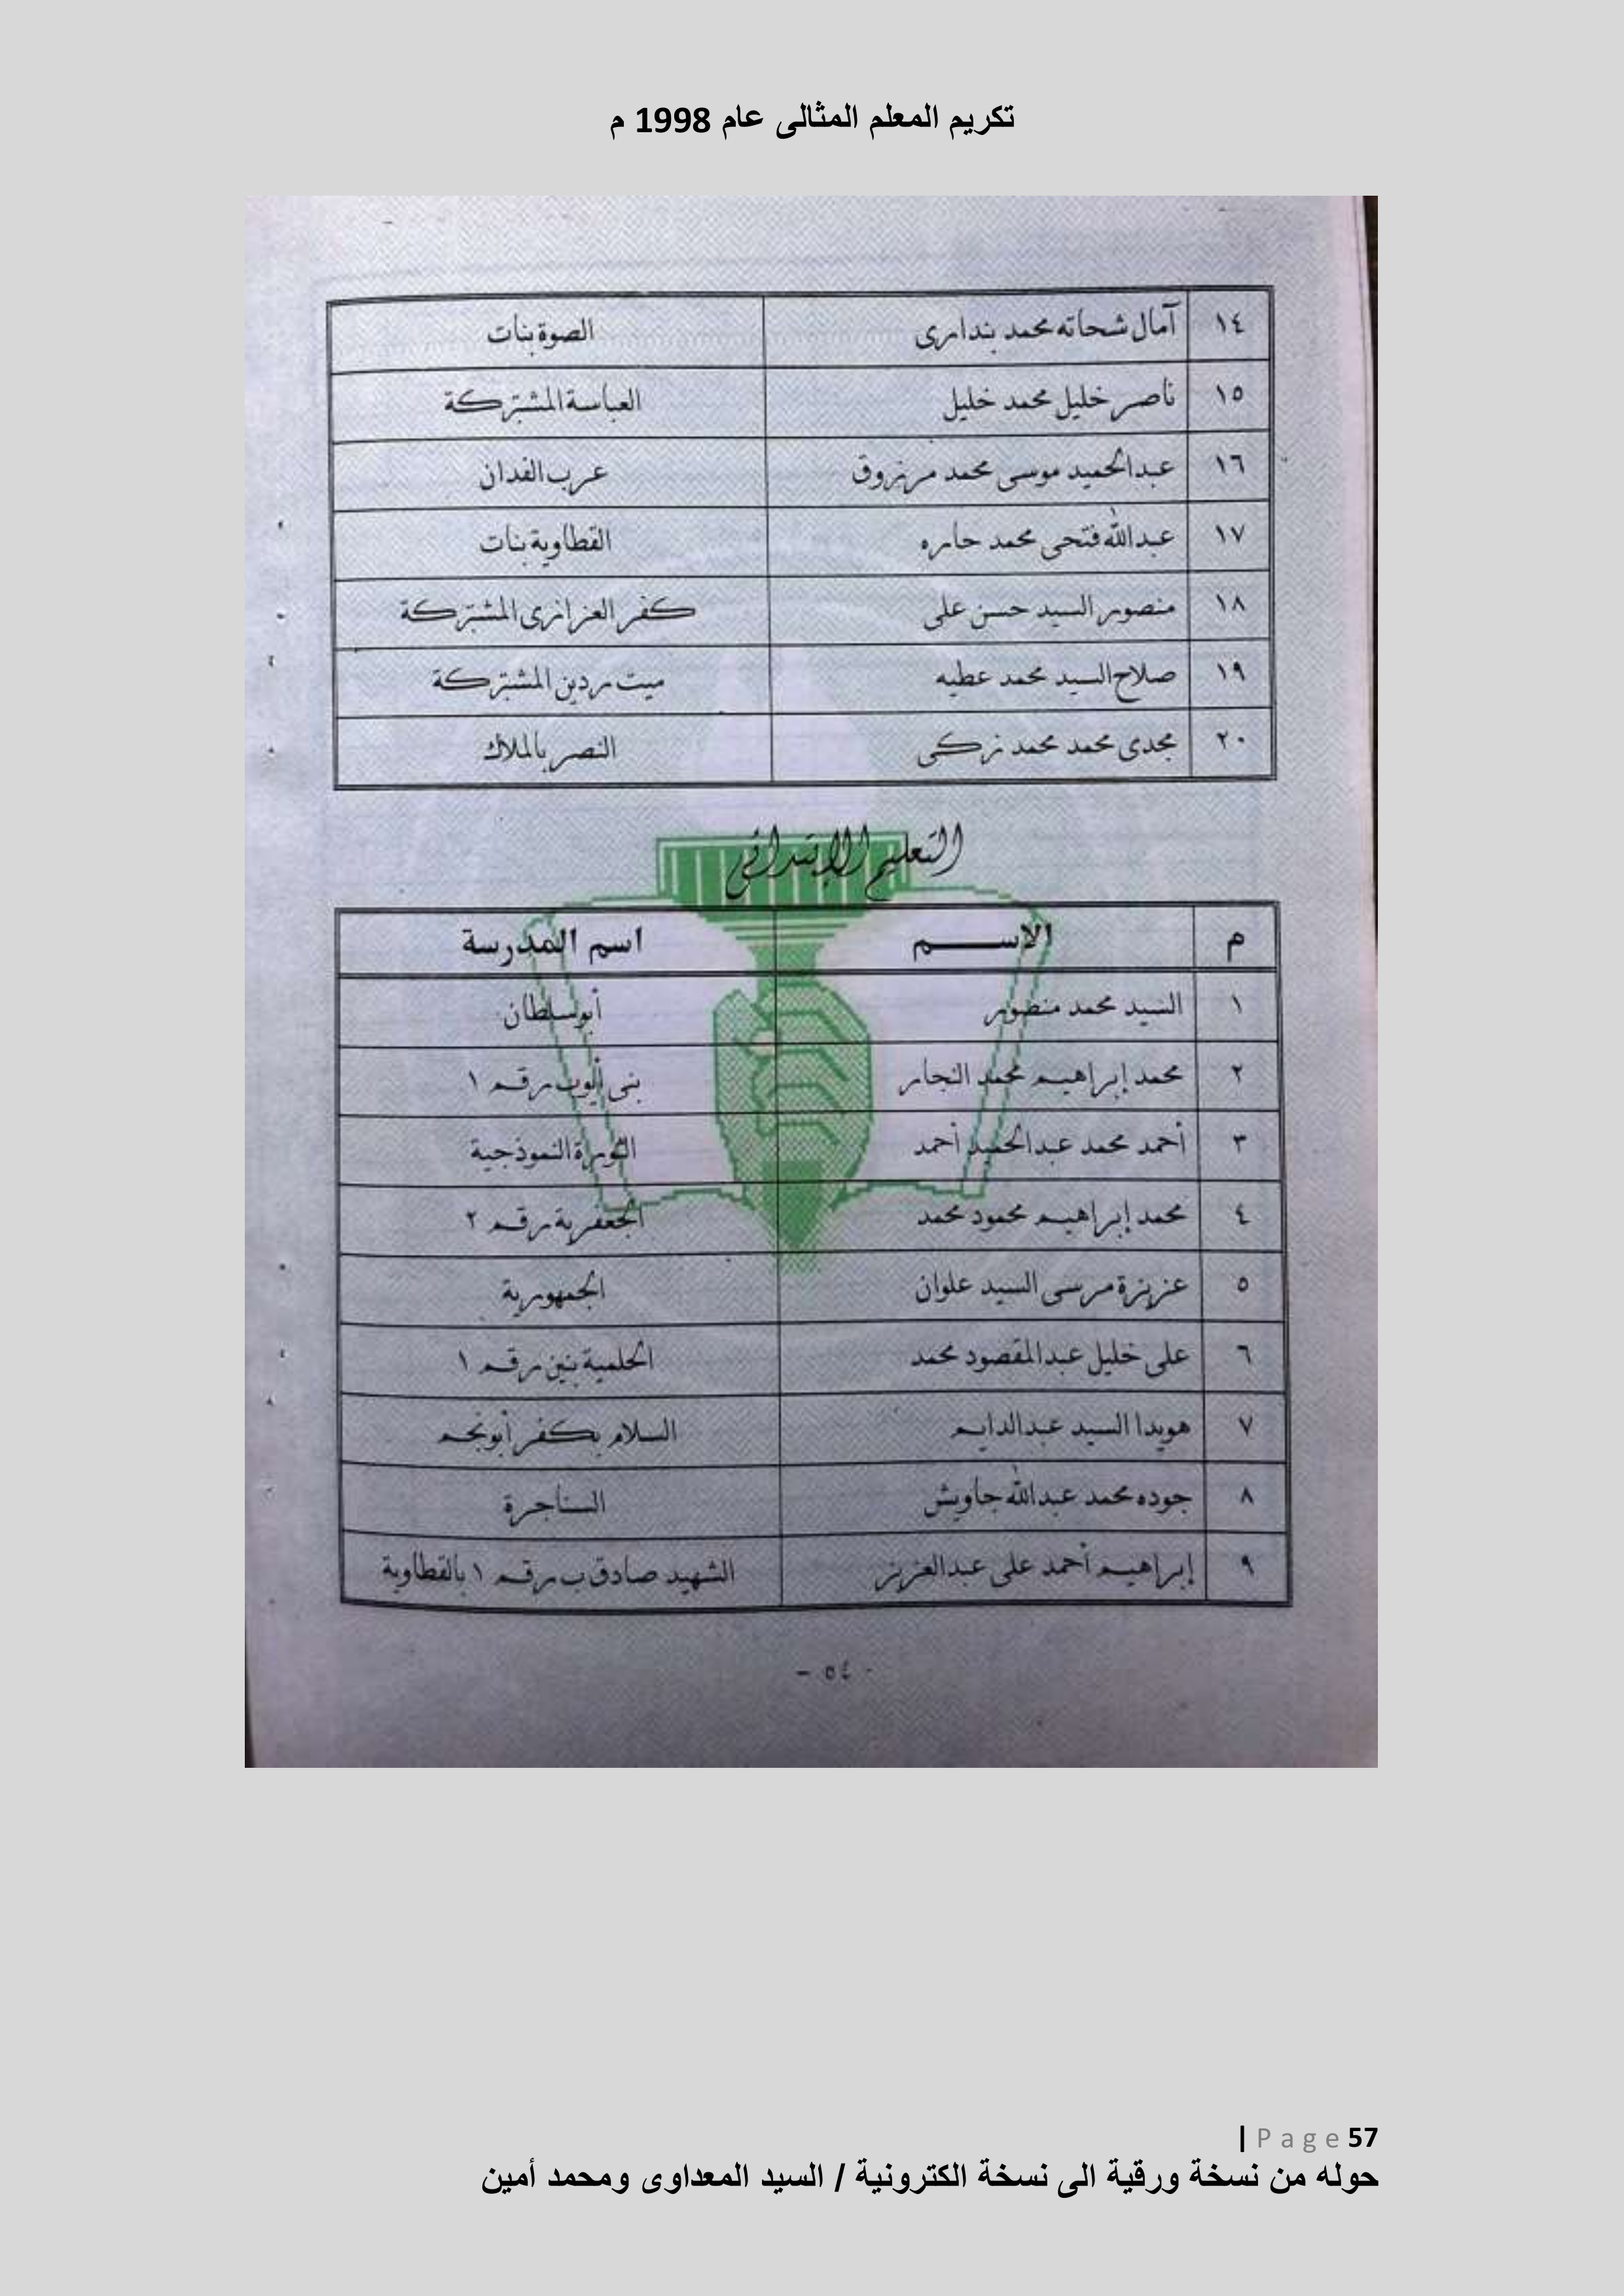 تكريم المعلم المثالى عام 1998 م
١٤ آمال شحاته محمد بندارى الصوة بنات
١٥ ناصر خليل محمد خليل العباسة المشتركة
١٦ عبدالحميد موسى محمد مرزوق عرب الفدان
١٧ عبدالله فتحى محمد حاره القطاوية بنات
١٨ منصور السيد حسن على كفر العزازى المشتركة
١٩ صلاح السيد محمد عطيه ميت ردين المشتركة
٢٠ مجدى محمد محمد زكى النصر بالملاك
التعليم الإبتدائى
م الإســـم اسم المدرسة
١ السيد محمد منصور أبو سلطان
٢ محمد إبراهيم محمد النجار بنى أيوب رقم ١
٣ أحمد محمد عبدالحميد أحمد الثورة النموذجية
٤ محمد إبراهيم محمود محمد الجعفرية رقم ٢
٥ عزيزة مرسى السيد علوان الجمهورية
٦ على خليل عبدالمقصود محمد الحلمية بنين رقم ١
٧ هويدا السيد عبدالدايم السلام بكفر أبو نجم
٨ جوده محمد عبدالله جاويش السناجرة
٩ إبراهيم أحمد على عبدالعزيز الشهيد صادق ب رقم ١ بالقطاوية
- ٥٤ -
| Page 57
حوله من نسخة ورقية الى نسخة الكترونية / السيد المعداوى ومحمد أمين